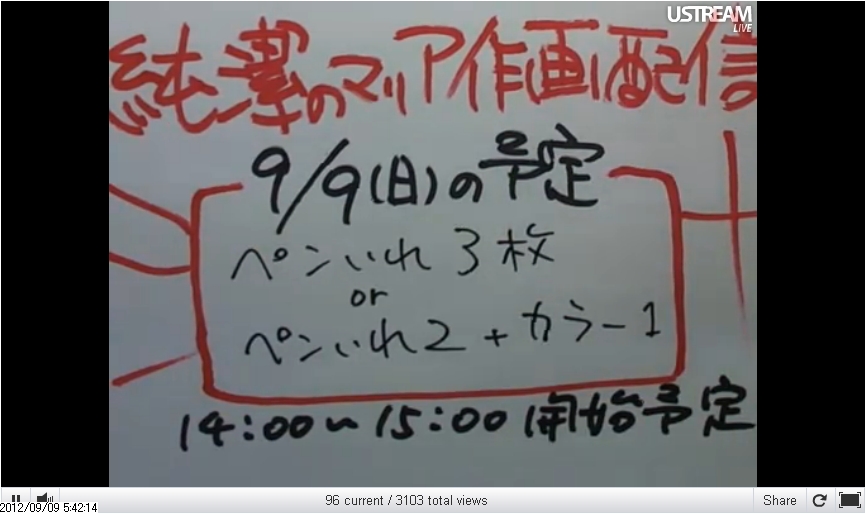 USTREAM
LIVE
純潔のマリア作画配信
9/9(日)の予定
ペンいれ3枚
or
ペンいれ2+カラー1
14:00~15:00開始予定
96 current / 3103 total views
Share
2012/09/09 5:42:14